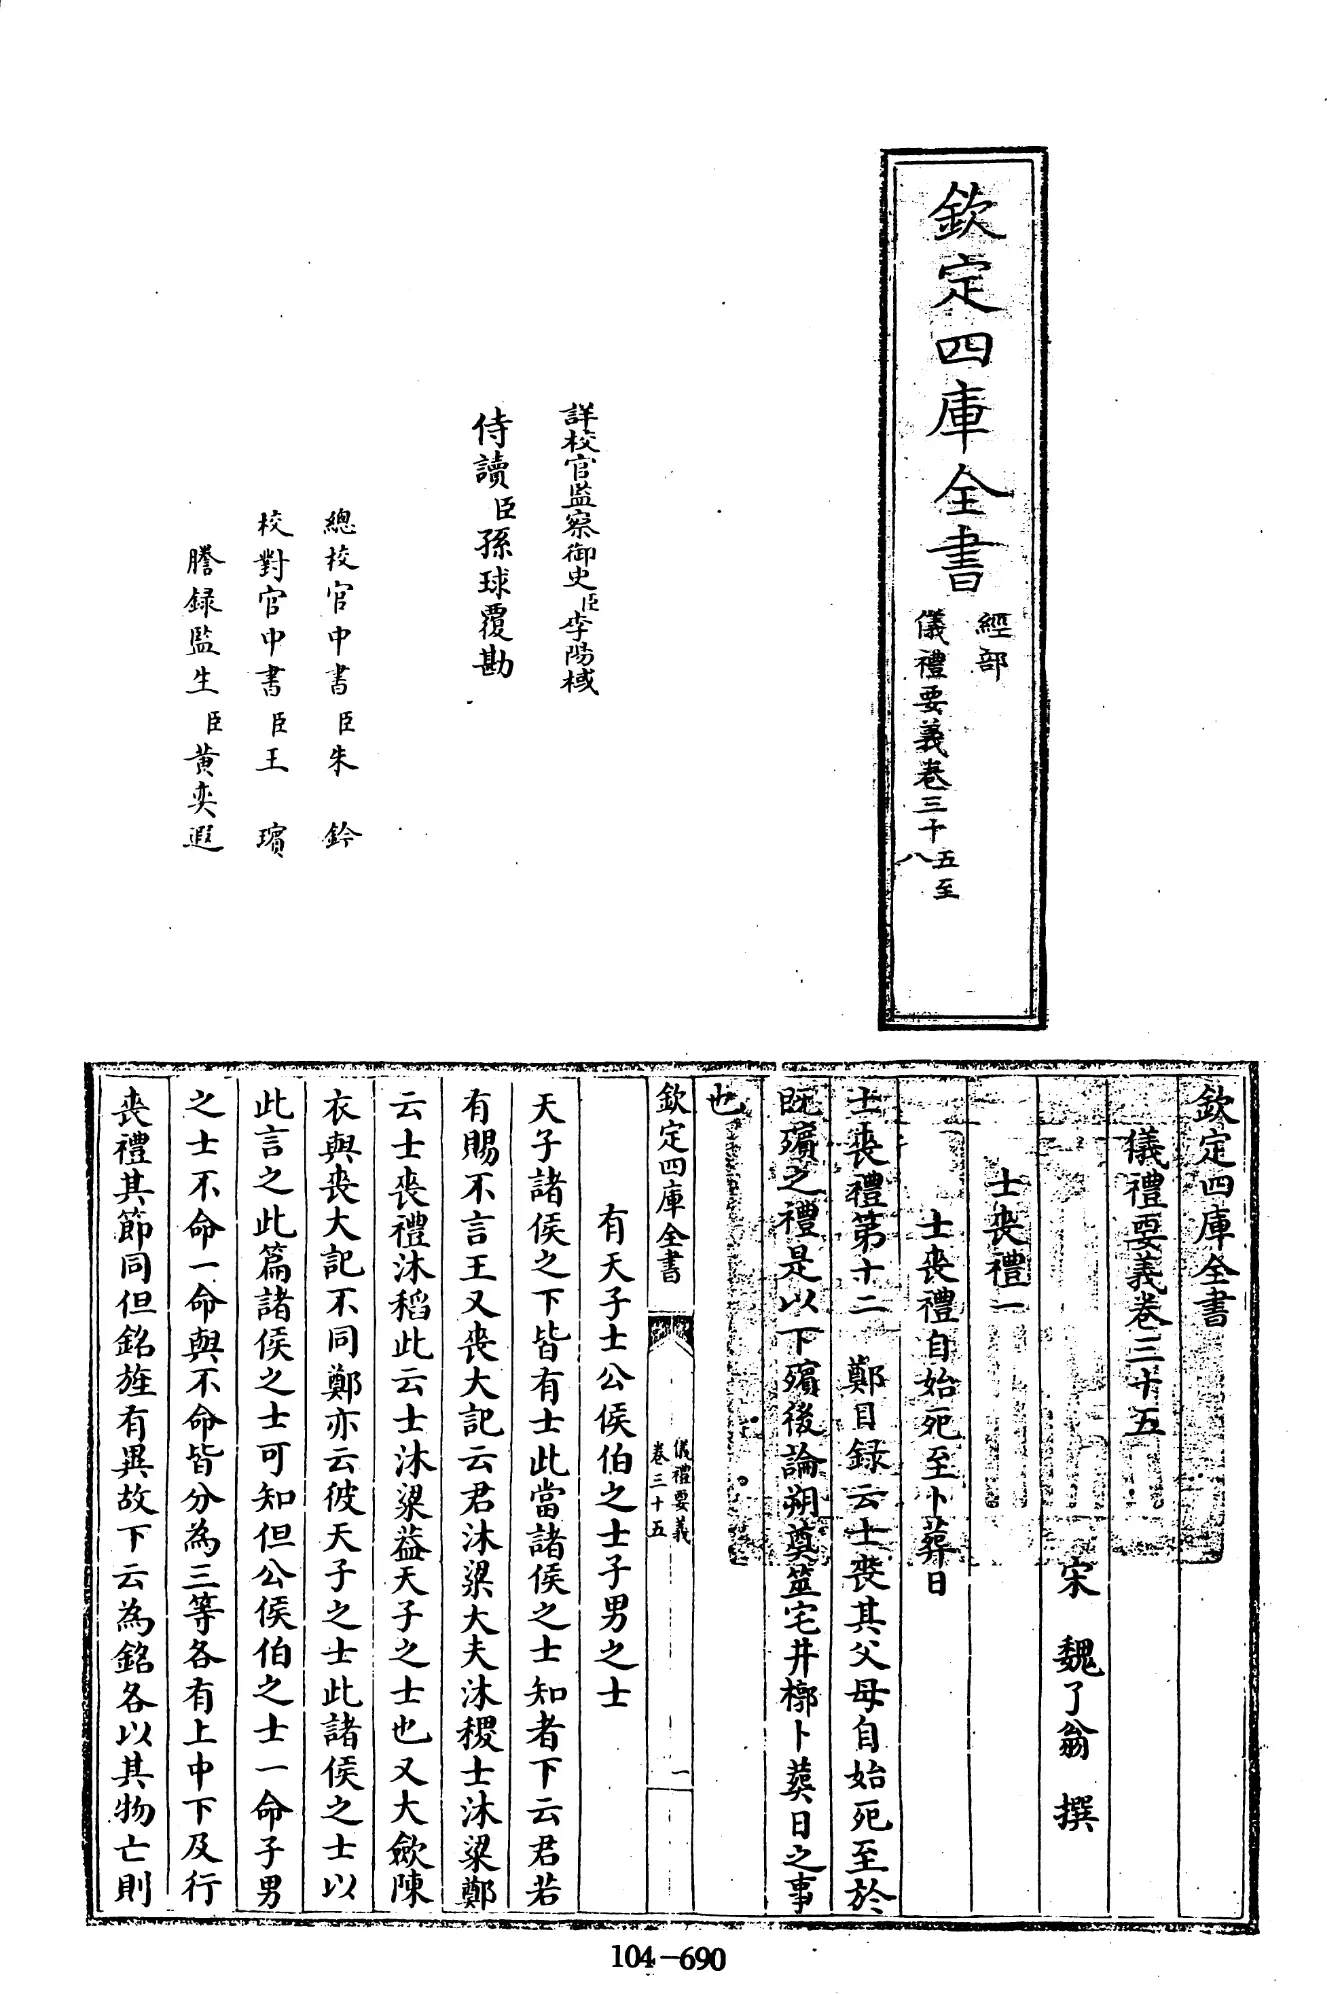 欽定四庫全書
經部
儀禮要義卷三十五至
八
詳校官監察御史臣李陽棫
侍讀臣孫球覆勘
總校官中書臣朱鈐
校對官中書臣王璸
謄録監生臣黄奕遐
欽定四庫全書
儀禮要義卷三十五
宋 魏了翁 撰
士喪禮一
士喪禮自始死至卜葬日
士喪禮第十二 鄭目録云士喪其父母自始死至於
既殯之禮是以下殯後論朔奠筮宅井槨卜葬日之事
也
欽定四庫全書
儀禮要義
卷三十五
一
有天子士公侯伯之士子男之士
天子諸侯之下皆有士此當諸侯之士知者下云君若
有賜不言王又喪大記云君沐粱大夫沐稷士沐粱鄭
云士喪禮沐稻此云士沐粱葢天子之士也又大斂陳
衣與喪大記不同鄭亦云彼天子之士此諸侯之士以
此言之此篇諸侯之士可知但公侯伯之士一命子男
之士不命一命與不命皆分為三等各有上中下及行
喪禮其節同但銘旌有異故下云為銘各以其物亡則
104-690